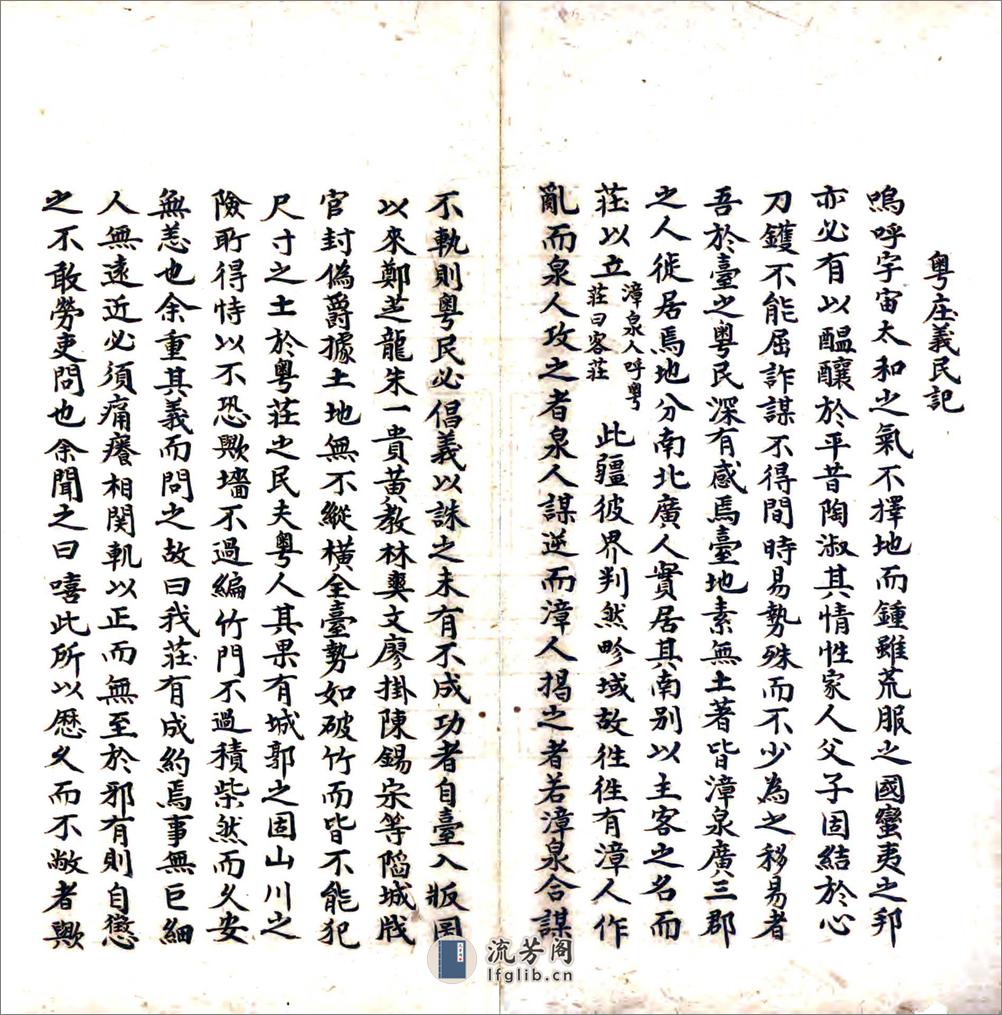 粤庄義民記
嗚呼宇宙太和之氣不擇地而鍾雖荒服之國蠻夷之邦
亦必有以醖釀於平昔陶淑其情性家人父子固結於心
刀鑊不能屈詐謀不得間時易勢殊而不少為之移易者
吾於臺之粵民深有感焉臺地素無土著皆漳泉廣三郡
之人徙居焉地分南北廣人實居其南別以主客之名而
莊以立漳泉人呼粵莊曰客莊此疆彼界判然畛域故徃徃有漳人作
亂而泉人攻之者泉人謀逆而漳人揭之者若漳泉合謀
不軌則粵民必倡義以誅之未有不成功者自臺入版圖
以來鄭芝龍朱一貴黃教林爽文廖掛陳錫宋等陷城戕
官封偽爵據土地無不縱橫全臺勢如破竹而皆不能犯
尺寸之土於粵莊之民夫粵人其果有城郭之固山川之
險可得恃以不恐歟墻不過編竹門不過積柴然而久安
無恙也余重其義而問之故曰我莊有成約焉事無巨細
人無遠近必須痛癢相関軌以正而無至於邪有則自懲
之不敢勞吏問也余聞之曰嘻此所以歷久而不敝者歟
流芳阁
lfglib.cn